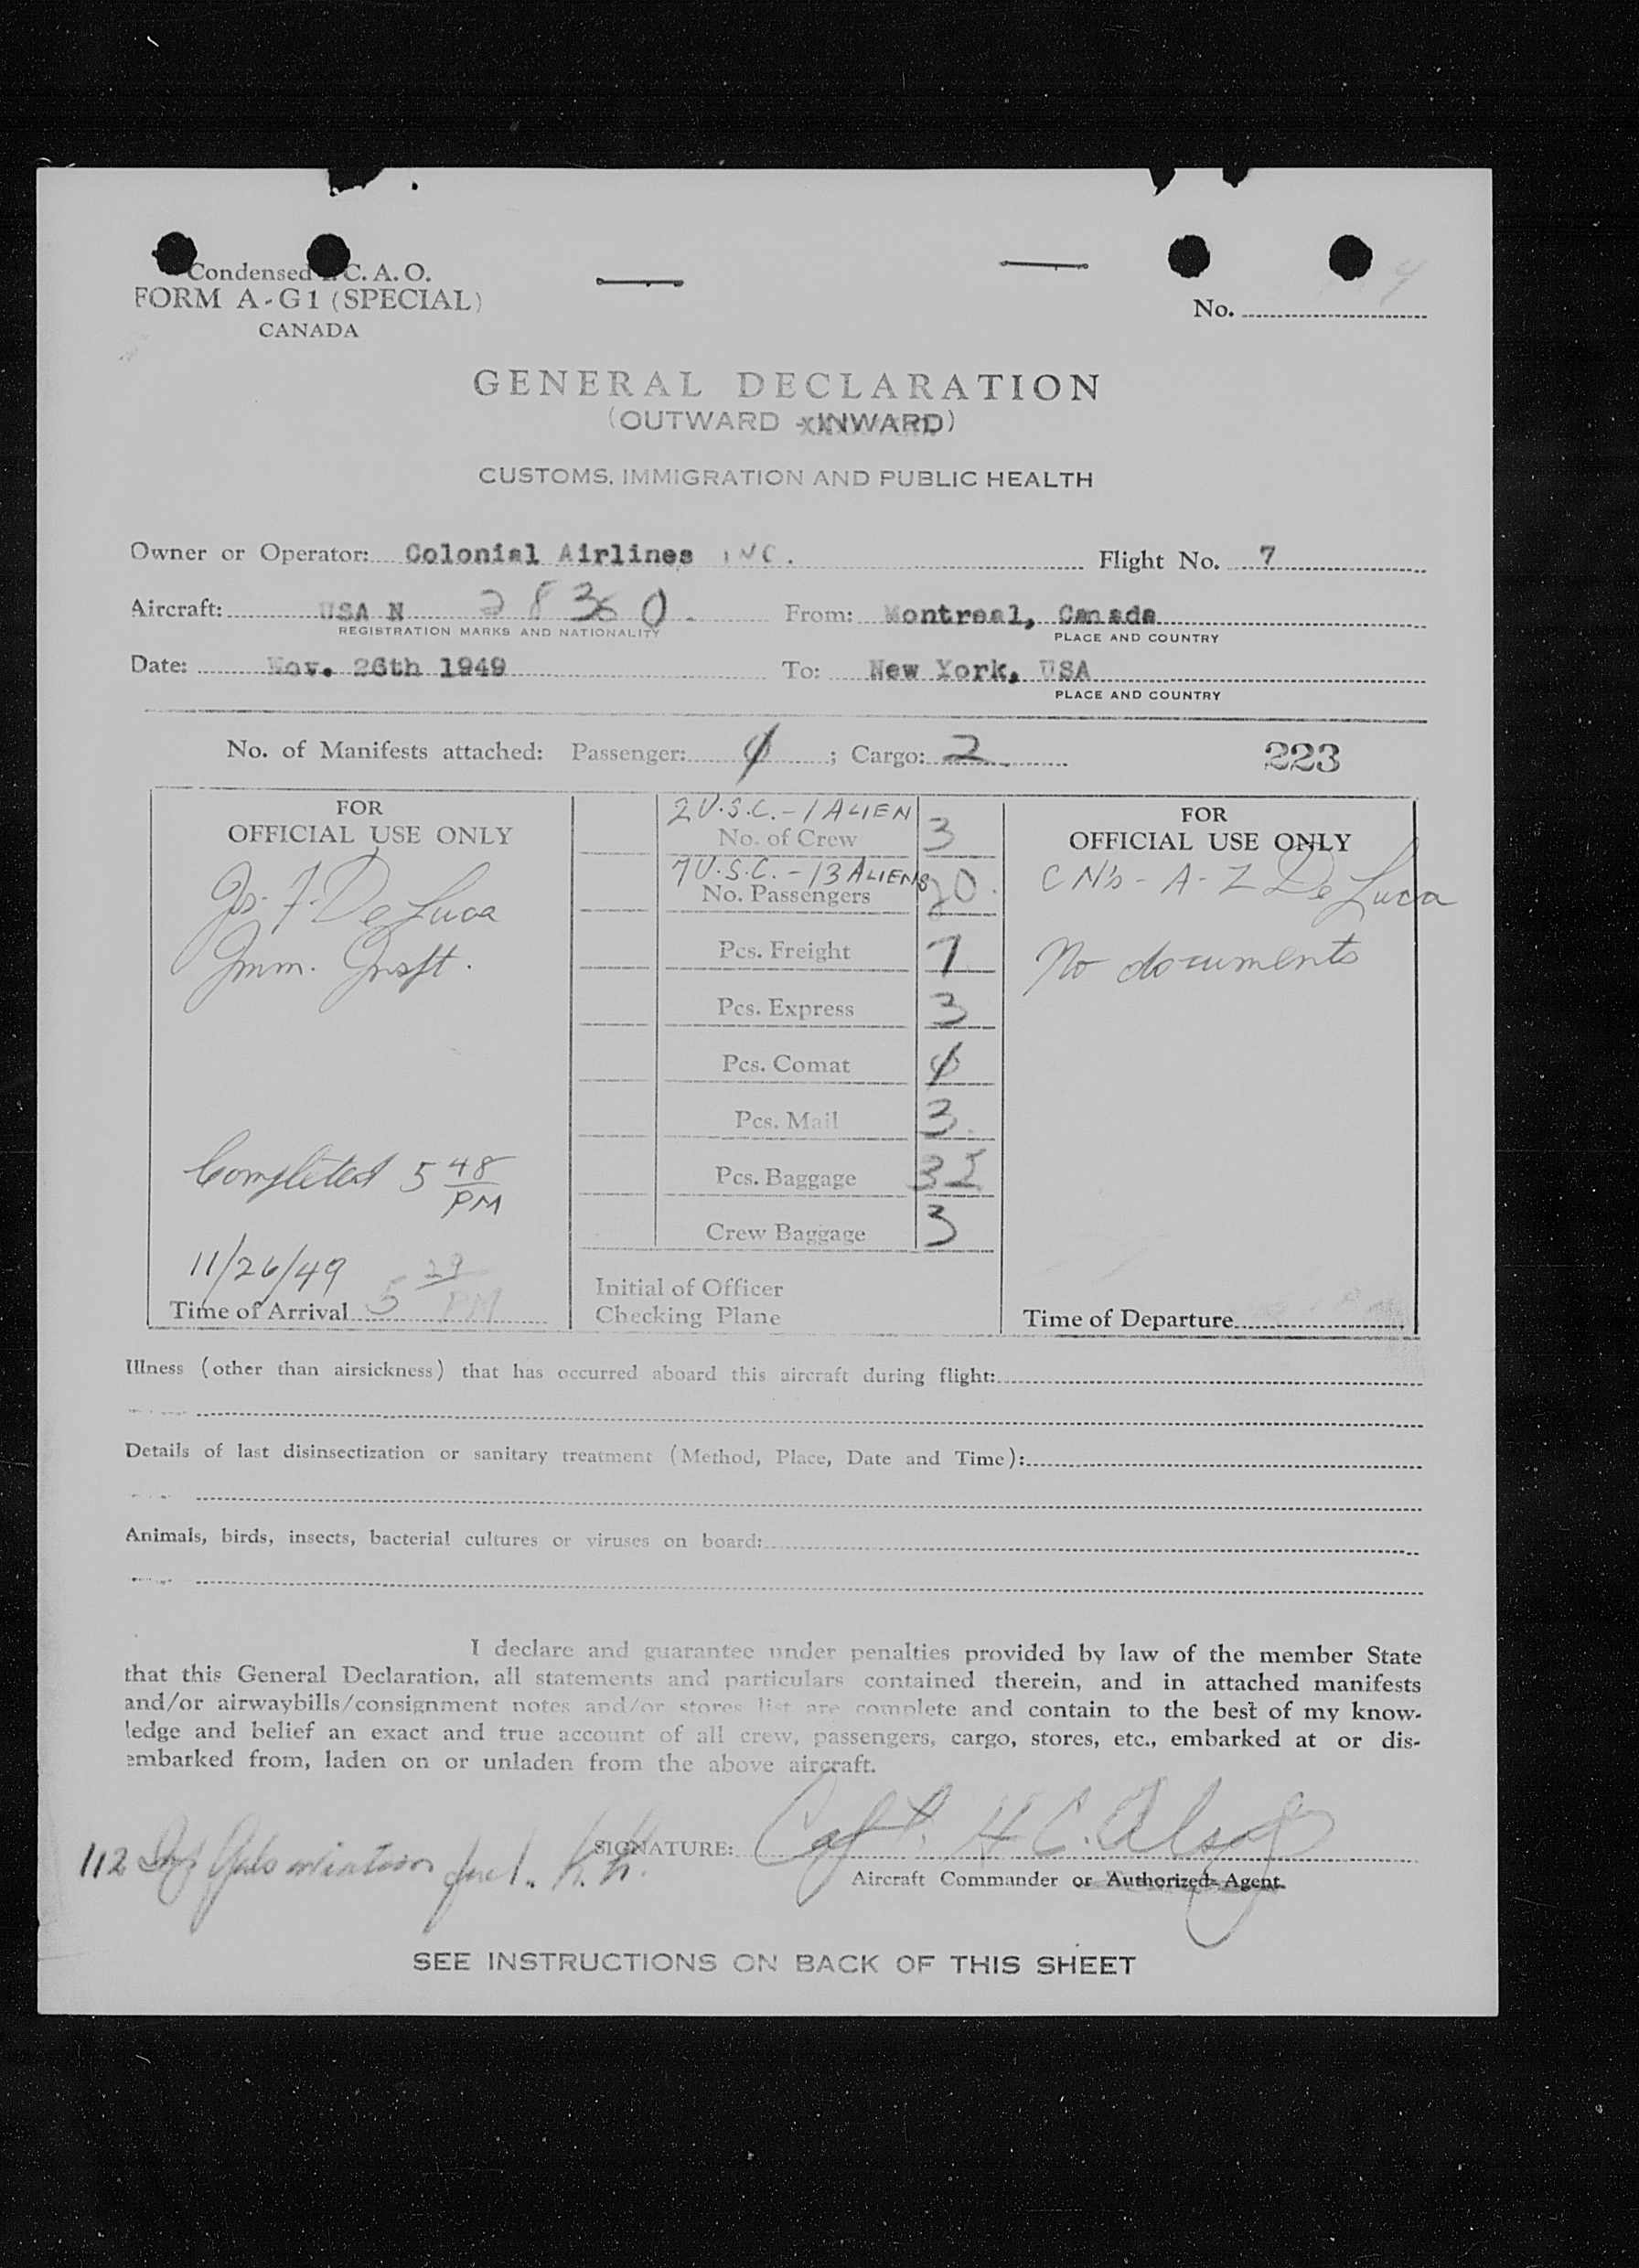 Condensed I. C. A. O.
FORM A-G1 (SPECIAL)
CANADA
No.
GENERAL DECLARATION
(OUTWARD - INWARD)
CUSTOMS, IMMIGRATION AND PUBLIC HEALTH
Owner or Operator: Colonial Airlines INC. Flight No. 7
Aircraft: USA N 28360. From: Montreal, Canada
REGISTRATION MARKS AND NATIONALITY PLACE AND COUNTRY
Date: Nov. 26th 1949 To: New York, USA
PLACE AND COUNTRY
No. of Manifests attached: Passenger: ; Cargo: 2 223
FOR
OFFICIAL USE ONLY
De Luca
Imm. Inspt.
Completed 5 48 PM
11/26/49 5 29 PM
Time of Arrival
2 U.S.C. - 1 ALIEN
No. of Crew 3
7 U.S.C. - 13 ALIENS
No. Passengers 20.
Pcs. Freight 7
Pcs. Express 3
Pcs. Comat
Pcs. Mail 3.
Pcs. Baggage
Crew Baggage 3
Initial of Officer
Checking Plane
FOR
OFFICIAL USE ONLY
De Luca
No documents
Time of Departure
Illness (other than airsickness) that has occurred aboard this aircraft during flight:
Details of last disinsectization or sanitary treatment (Method, Place, Date and Time):
Animals, birds, insects, bacterial cultures or viruses on board:
I declare and guarantee under penalties provided by law of the member State
that this General Declaration, all statements and particulars contained therein, and in attached manifests
and/or airwaybills/consignment notes and/or stores list are complete and contain to the best of my know-
ledge and belief an exact and true account of all crew, passengers, cargo, stores, etc., embarked at or dis-
embarked from, laden on or unladen from the above aircraft.
SIGNATURE: Capt. H C.
112 fuel.
Aircraft Commander or Authorized Agent
SEE INSTRUCTIONS ON BACK OF THIS SHEET